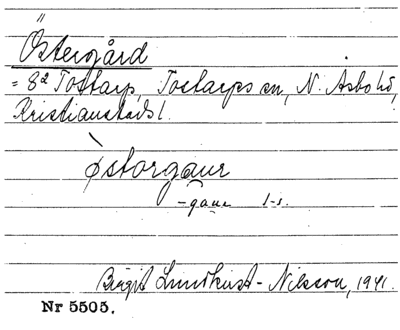 Östergård
= 8² Tostarp, Tostarps sn, N. Åsbo hd,
Kristianstads l.
östorgaur
-gaur s-s.
Birgit Lundkvist-Nilsson, 1941.
Nr 5505.